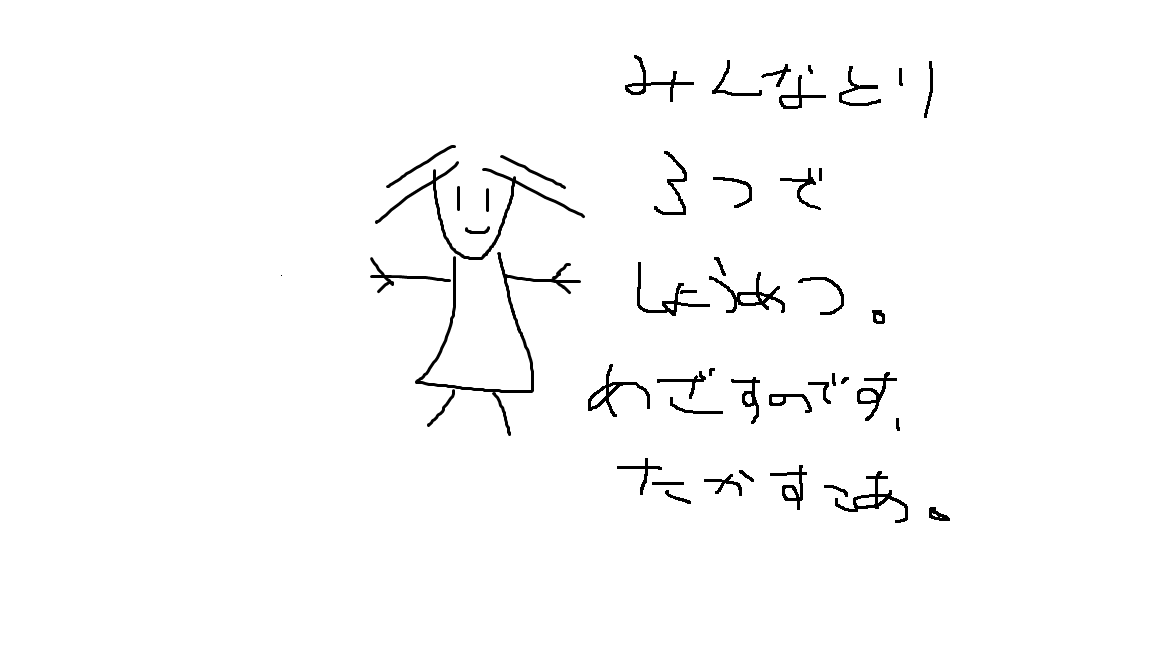 みんなとり
ろつで
しょうあつ。
めざすのです、
たかすこあ。